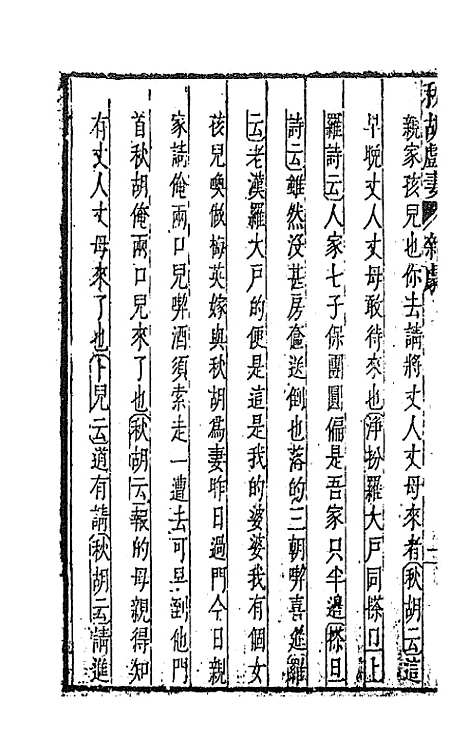 秋胡戲妻 雜劇
親家孩兒也你去請將丈人丈母來者秋胡云這
早晚丈人丈母敢待來也淨扮羅大戶同搽旦上
羅詩云人家七子保團圓偏是吾家只半邊搽旦
詩云雖然沒甚房奩送倒也落的三朝弊喜筵羅
云老漢羅大戶的便是這是我的婆婆我有個女
孩兒喚做梅英嫁與秋胡爲妻昨日過門今日親
家請俺兩口兒弊酒須索走一遭去可早到他門
首秋胡俺兩口兒來了也秋胡云報的母親得知
有丈人丈母來了也卜兒云道有請秋胡云請進